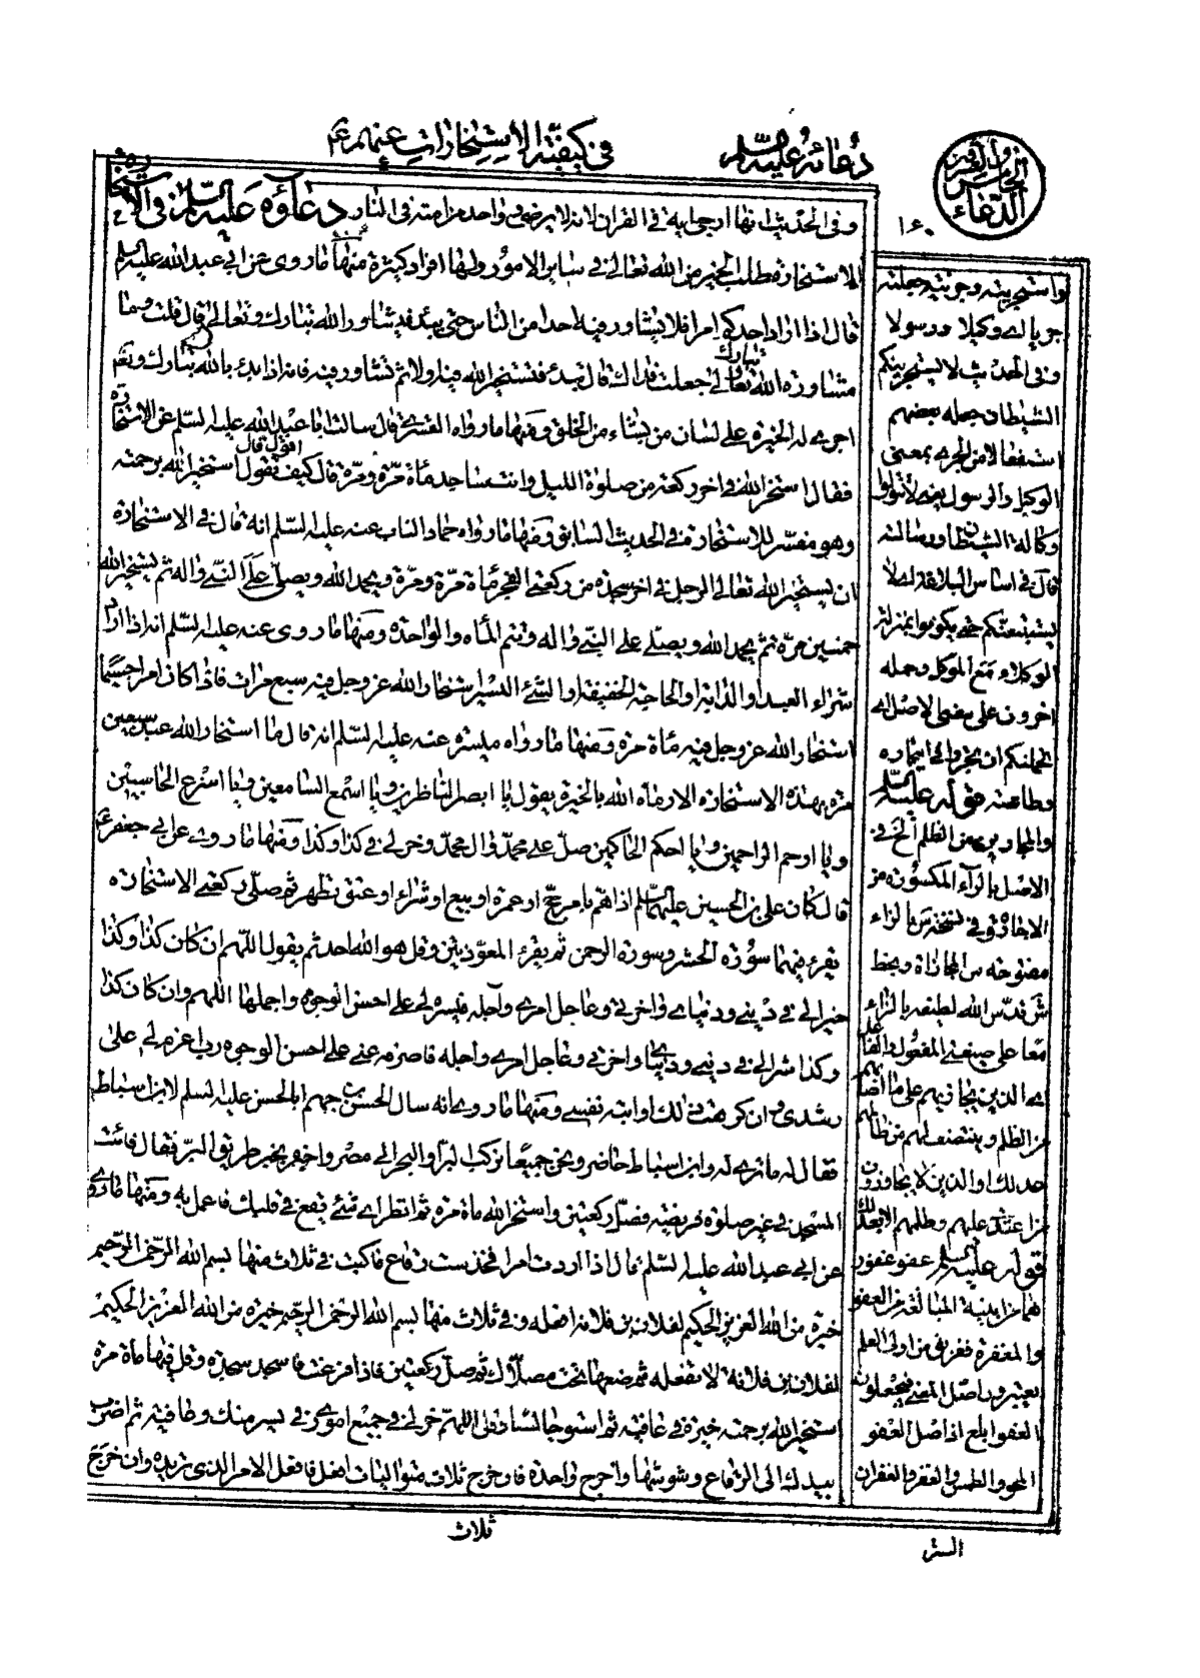 دعائه عليه السلم
في كيفية الاستخارات عنهم ع
١٦٠
وفي الحديث انها ارجى اية في القران لانه لا يرضى وواحد من امته في النار دعاؤه عليه السلم في الاستخاره
الاستخارة طلب الخير من الله تعالى في سائر الامور ولها افراد كثيرة منها ما روى عن ابي عبد الله عليه السلم
قال اذا اراد احدكم امرا فلا يشاور فيه احدا من الناس حتى يبدء فيشاور الله تبارك وتعالى قال قلت وما
مشاورة الله تعالى جعلت فداك قال تبدء فتستخير الله فيه اولا ثم تشاور فيه فانه اذا بدء بالله تبارك وتعم
اجرى له الخيرة على لسان من يشاء من الخلق ومنها ما رواه القسري قال سالت ابا عبد الله عليه السلم عن الاستخارة
فقال استخر الله في اخر ركعة من صلوة الليل وانت ساجد مأة مرة ومرة قال كيف اقول قال تقول استخير الله برحمته
وهو مفسر للاستخارة في الحديث السابق ومنها ما رواه حماد الناب عنه عليه السلم انه قال في الاستخارة
ان يستخير الله تعالى الرجل في اخر سجدة من ركعتي الفجر مأة مرة ومرة ويحمد الله ويصلي على النبي واله ثم يستخير الله
خمسين مرة ثم يحمد الله ويصلي على النبي واله وتتم المأه والواحدة ومنها ما روى عنه عليه السلم انه اذا اراد
شراء العبد او الدابة او الحاجة الخفيفة او الشئ اليسير استخار الله عز وجل فيه سبع مرات فاذا كان امرا جسيما
استخار الله عز وجل فيه مأة مرة ومنها ما رواه ميسرة عنه عليه السلم انه قال ما استخار الله عبد سبعين
مرة بهذه الاستخارة الا رماه الله بالخيرة يقول يا ابصر الناظرين ويا اسمع السامعين ويا اسرع الحاسبين
ويا ارحم الراحمين ويا احكم الحاكمين صل على محمد وال محمد وخر لي في كذا وكذا ومنها ما روى عن ابي جعفر ع
قال كان علي بن الحسين عليهما السلم اذا هم بامر حج او عمرة او بيع او شراء او عتق تطهر ثم صلى ركعتي الاستخارة
يقرء فيهما سورة الحشر وسورة الرحمن ثم يقرء المعوذتين وقل هو الله احد ثم يقول اللهم ان كان كذا وكذا
خيرا لي في ديني ودنياي واخرتي وعاجل امري وآجله فيسره لي على احسن الوجوه واجملها اللهم وان كان كذا
وكذا شرا لي في ديني ودنياي واخرتي وعاجل امري واجله فاصرفه عني على احسن الوجوه رب اعزم لي على
رشدي وان كرهت ذلك او ابته نفسي ومنها ما روى انه سال الحسن بن جهم ابا الحسن عليه السلم لابن اسباط
فقال له ما ترى له وابن اسباط حاضر ونحن جميعا نركب البر او البحر الى مصر واخبره بخير طريق البر فقال فائت
المسجد في غير صلوة فريضة فصل ركعتين واستخر الله مأة مرة ثم انظر اي شئ يقع في قلبك فاعمل به ومنها ما روى
عن ابي عبد الله عليه السلم قال اذا اردت امرا فخذ ست رقاع فاكتب في ثلاث منها بسم الله الرحمن الرحيم
خيرة من الله العزيز الحكيم لفلان بن فلانة افعله وفي ثلاث منها بسم الله الرحمن الرحيم خيرة من الله العزيز الحكيم
لفلان بن فلانة لا تفعله ثم ضعها تحت مصلاك ثم صل ركعتين فاذا فرغت فاسجد سجدة وقل فيها مأة مرة
استخير الله برحمته خيرة في عافية ثم استو جالسا وقل اللهم خر لي في جميع اموري في يسر منك وعافية ثم اضرب
بيدك الى الرقاع وشوشها واخرج واحدة فان خرج ثلاث متواليات افعل فافعل الامر الذي تريده وان خرج
ثلاث
واستجريته
جريا اي وكيلا ورسولا
وفي الحديث لا يستجرينكم
الشيطان وجعله بعضهم
استفعالا من الجرى بمعنى
الوكيل والرسول
وكالة الشيطان ورسالته
قال في اساس البلاغة اي لا
يستتبعنكم حتى يكونوا بمنزلة
الوكلاء مع الموكل وحمله
اخرون على معنى الاصل اي
وطاعته قوله عليه السلم
والمجارين من الظلم الخ في
الاصل بالراء المكسورة من
الاجارة وفي نسخة س بالزاء
مفتوحة من المجازاة وبخط
ش قدس الله لطيفه بالزاء
معا على صيغتي المفعول والفاعل
اي الذين يجازيهم على ما اصابهم
من الظلم وينتصف لهم من ظالمهم
عدلك او الذين لا يجاوزون
قوله عليه السلم عفو غفور
هما من ابنية المبالغة من العفو
والمغفرة ففريق من اولى العلم
يعتبرون اصل المعنى فيجعلون
العفو ابلغ اذ اصل العفو
المحو والطمس والغفر والغفران
الستر